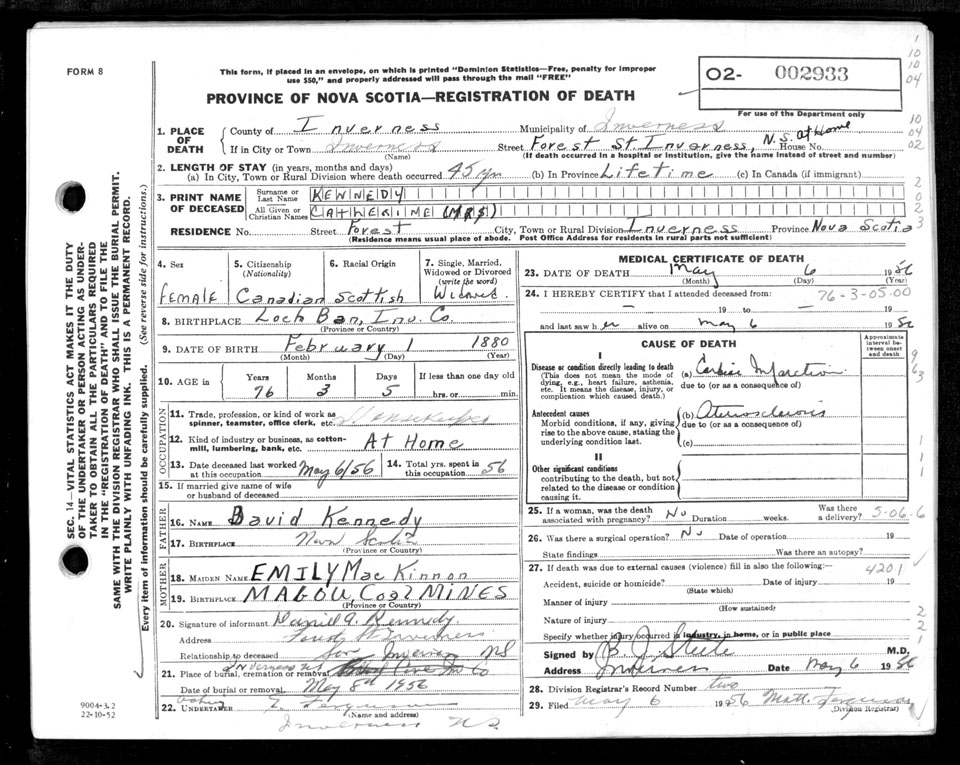 FORM 8
This form, if placed in an envelope, on which is printed "Dominion Statistics—Free, penalty for improper
use $50," and properly addressed will pass through the mail "FREE"
PROVINCE OF NOVA SCOTIA—REGISTRATION OF DEATH
02- 002933
For use of the Department only
1. PLACE OF DEATH County of Inverness Municipality of Inverness
If in City or Town Inverness Street Forest St. Inverness, N.S. House No. at Home
(Name) (If death occurred in a hospital or institution, give the name instead of street and number)
2. LENGTH OF STAY (in years, months and days)
(a) In City, Town or Rural Division where death occurred 45 yrs (b) In Province Lifetime (c) In Canada (if immigrant)
3. PRINT NAME OF DECEASED Surname or Last Name KENNEDY
All Given or Christian Names CATHERINE (MRS)
RESIDENCE No. Street Forest City, Town or Rural Division Inverness Province Nova Scotia
(Residence means usual place of abode. Post Office Address for residents in rural parts not sufficient)
4. Sex 5. Citizenship (Nationality) 6. Racial Origin 7. Single, Married, Widowed or Divorced (write the word)
FEMALE Canadian Scottish Widowed.
8. BIRTHPLACE Loch Ban, Inv. Co.
(Province or Country)
9. DATE OF BIRTH February 1 1880
(Month) (Day) (Year)
10. AGE in Years Months Days If less than one day old
76 3 5 hrs. or min.
OCCUPATION
11. Trade, profession, or kind of work as spinner, teamster, office clerk, etc. Housekeeper
12. Kind of industry or business, as cotton-mill, lumbering, bank, etc. At Home
13. Date deceased last worked at this occupation May 6/56 14. Total yrs. spent in this occupation 56
15. If married give name of wife or husband of deceased
FATHER
16. NAME David Kennedy
17. BIRTHPLACE Nova Scotia
(Province or Country)
MOTHER
18. MAIDEN NAME EMILY Mac Kinnon
19. BIRTHPLACE MABOU, Coal MINES
(Province or Country)
20. Signature of informant Daniel A. Kennedy
Address Forest St Inverness
Relationship to deceased son Inverness NS
21. Place of burial, cremation or removal Inverness
Date of burial or removal May 8th 1956
22. UNDERTAKER E. Ferguson
(Name and address)
Inverness NS
MEDICAL CERTIFICATE OF DEATH
23. DATE OF DEATH May 6 1956
(Month) (Day) (Year)
24. I HEREBY CERTIFY that I attended deceased from:
76-3-05.00
19 to 19
and last saw her alive on May 6 1956
CAUSE OF DEATH
Approximate interval between onset and death
I
Disease or condition directly leading to death
(This does not mean the mode of dying, e.g., heart failure, asthenia, etc. It means the disease, injury, or complication which caused death.)
(a) Cardiac Infarction
due to (or as a consequence of)
Antecedent causes
Morbid conditions, if any, giving rise to the above cause, stating the underlying condition last.
(b) Aterosclerosis
due to (or as a consequence of)
(c)
II
Other significant conditions
contributing to the death, but not related to the disease or condition causing it.
25. If a woman, was the death associated with pregnancy? No Duration weeks. Was there a delivery? 5-06.6
26. Was there a surgical operation? No Date of operation 19
State findings Was there an autopsy?
27. If death was due to external causes (violence) fill in also the following:—
4201
Accident, suicide or homicide? Date of injury 19
(State which)
Manner of injury
(How sustained)
Nature of injury
Specify whether injury occurred in industry, in home, or in public place
Signed by B. J. Steele M.D.
Address Inverness Date May 6 1956
28. Division Registrar's Record Number two
29. Filed May 6 1956 Matt. Ferguson
(Division Registrar)
SEC. 14—VITAL STATISTICS ACT MAKES IT THE DUTY
OF THE UNDERTAKER OR PERSON ACTING AS UNDER-
TAKER TO OBTAIN ALL THE PARTICULARS REQUIRED
IN THE "REGISTRATION OF DEATH" AND TO FILE THE
SAME WITH THE DIVISION REGISTRAR WHO SHALL ISSUE THE BURIAL PERMIT.
WRITE PLAINLY WITH UNFADING INK. THIS IS A PERMANENT RECORD.
Every item of information should be carefully supplied. (See reverse side for instructions.)
9004-3.2
22-10-52